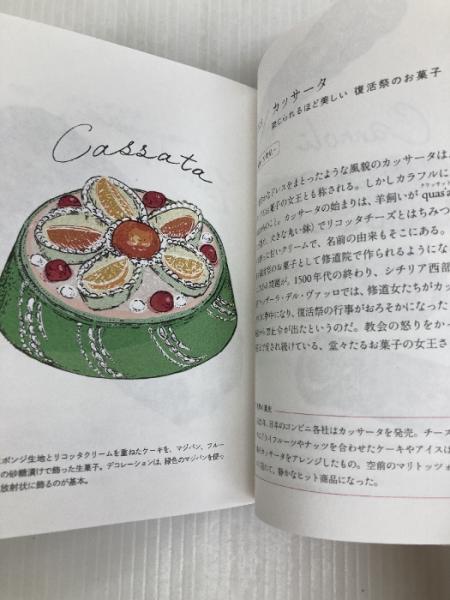 Cassata
スポンジ生地とリコッタクリームを重ねたケーキを、マジパン、フルー
の砂糖漬けで飾った生菓子。デコレーションは、緑色のマジパンを使っ
放射状に飾るのが基本。
カッサータ
禁じられるほど美しい 復活祭のお菓子
ドレスをまとったような風貌のカッサータは
お菓子の女王とも称される。しかしカラフルに
カッサータの始まりは、羊飼いが quas'a
大きな丸い鉢)でリコッタチーズとはちみつ
甘いクリームで、名前の由来もそこにある。
のお菓子として修道院で作られるようにな
問題が。1500年代の終わり、シチリア西部
ザーラ・デル・ヴァッロでは、修道女たちがカッ
に夢中になり、復活祭の行事がおろそかになった
禁止令が出たというのだ。教会の怒りをかっ
愛され続けている、堂々たるお菓子の女王さ
年、日本のコンビニ各社はカッサータを発売。チーズ
ライフルーツやナッツを合わせたケーキやアイスは
カッサータをアレンジしたもの。空前のマリトッツォ
静かなヒット商品になった。